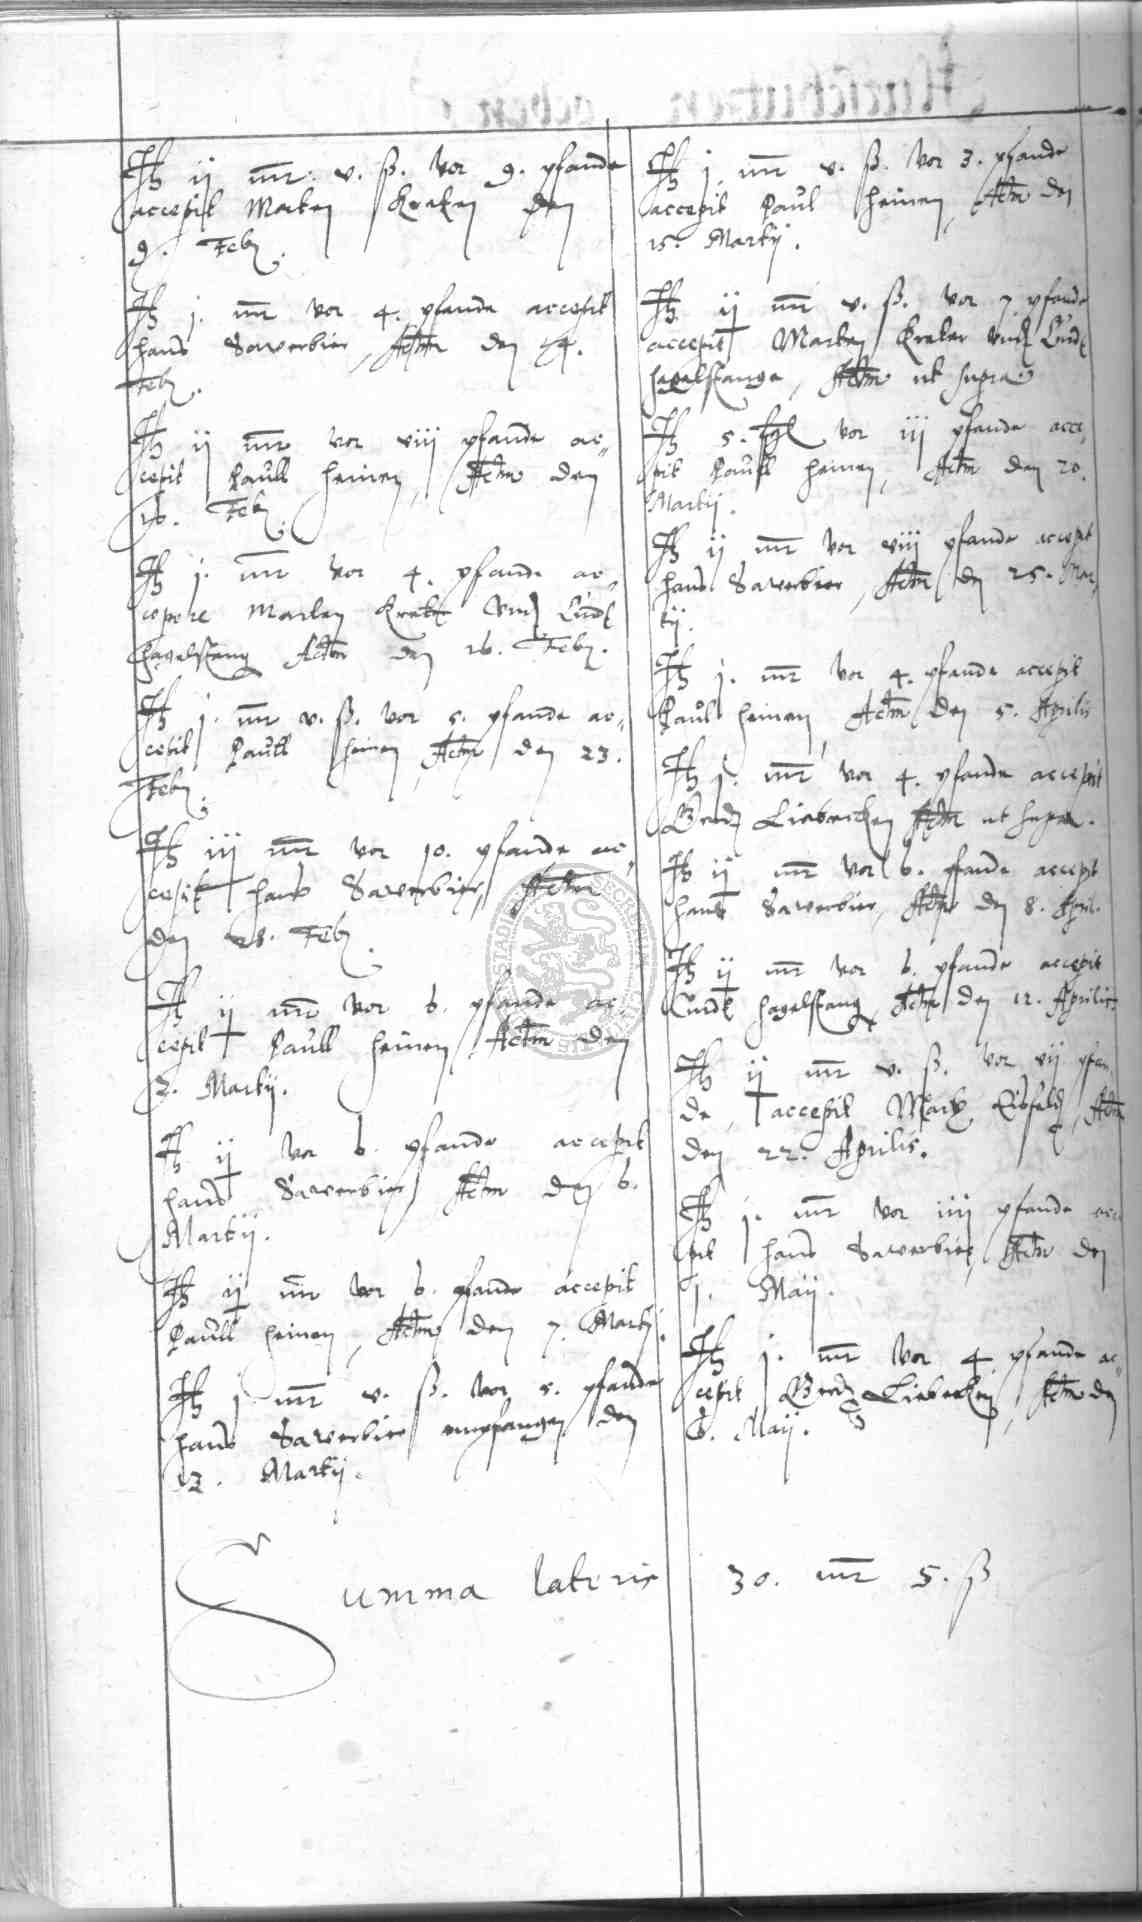 It ij mr v. ß. vor 9. pfande
accepit Marten Kraken den
9. Feb.
It j. mr vor 4. pfande accepit
Hans Sawerbier, Actm den 14.
Feb.
It ij mr vor viij pfande ac-
cepit Paull Heinen, Actm den
16. Feb.
It j. mr vor 4. pfande ac-
cepere Marten Kraken Vnd Curdt
Hagelstang Actm den 16. Feb.
It j. mr v. ß. vor 5. pfande ac-
cepit Paull Heinen, Actm den 23.
Feb.
It iij mr vor 10. pfande ac-
cepit Hans Sawerbier, Actm
den 28. Feb.
It ij mr vor 6. pfande ac-
cepit Paull Heinen, Actm den
3. Martij.
It ij vor 6. pfande accepit
Hans Sawerbier Actm den 6.
Martij.
It ij mr vor 6. pfande accepit
Paull Heinen, Actm den 7. Martij.
It j mr v. ß. vor 5. pfande
Hans Sawerbier empfangen den
13. Martij.
It j mr v. ß. vor 3. pfande
accepit Paul Heinen, Actm den
15. Martij.
It ij mr v. ß. vor 7 pfande
accepit Marten Kraken Vnd Curdt
Hagelstange, Actm ut supra
It 5. vor iij pfande acce-
pit Paull Heinen, Actm den 20.
Martij.
It ij mr vor viij pfande accepit
Hans Sawerbier, Actm den 25. Mar-
tij.
It j. mr vor 4. pfande accepit
Paul Heinen, Actm den 5. Aprilis
It j. mr vor 4. pfande accepit
Liebecken Actm ut supra.
It ij mr vor 6. pfande accepit
Hans Sawerbier, Actm den 8. April.
It ij mr vor 6. pfande accepit
Curdt Hagelstang, Actm den 12. Aprilis
It ij mr v. ß. vor vij pfan-
de, accepit Marx Eisfeld, Actm
den 22. Aprilis.
It j. mr vor iiij pfande acce-
pit Hans Sawerbier, Actm den
1. Maij.
It j. mr vor 4 pfande ac-
cepit Liebecken, Actm den
6. Maij.
Summa lateris 30. mr 5. ß